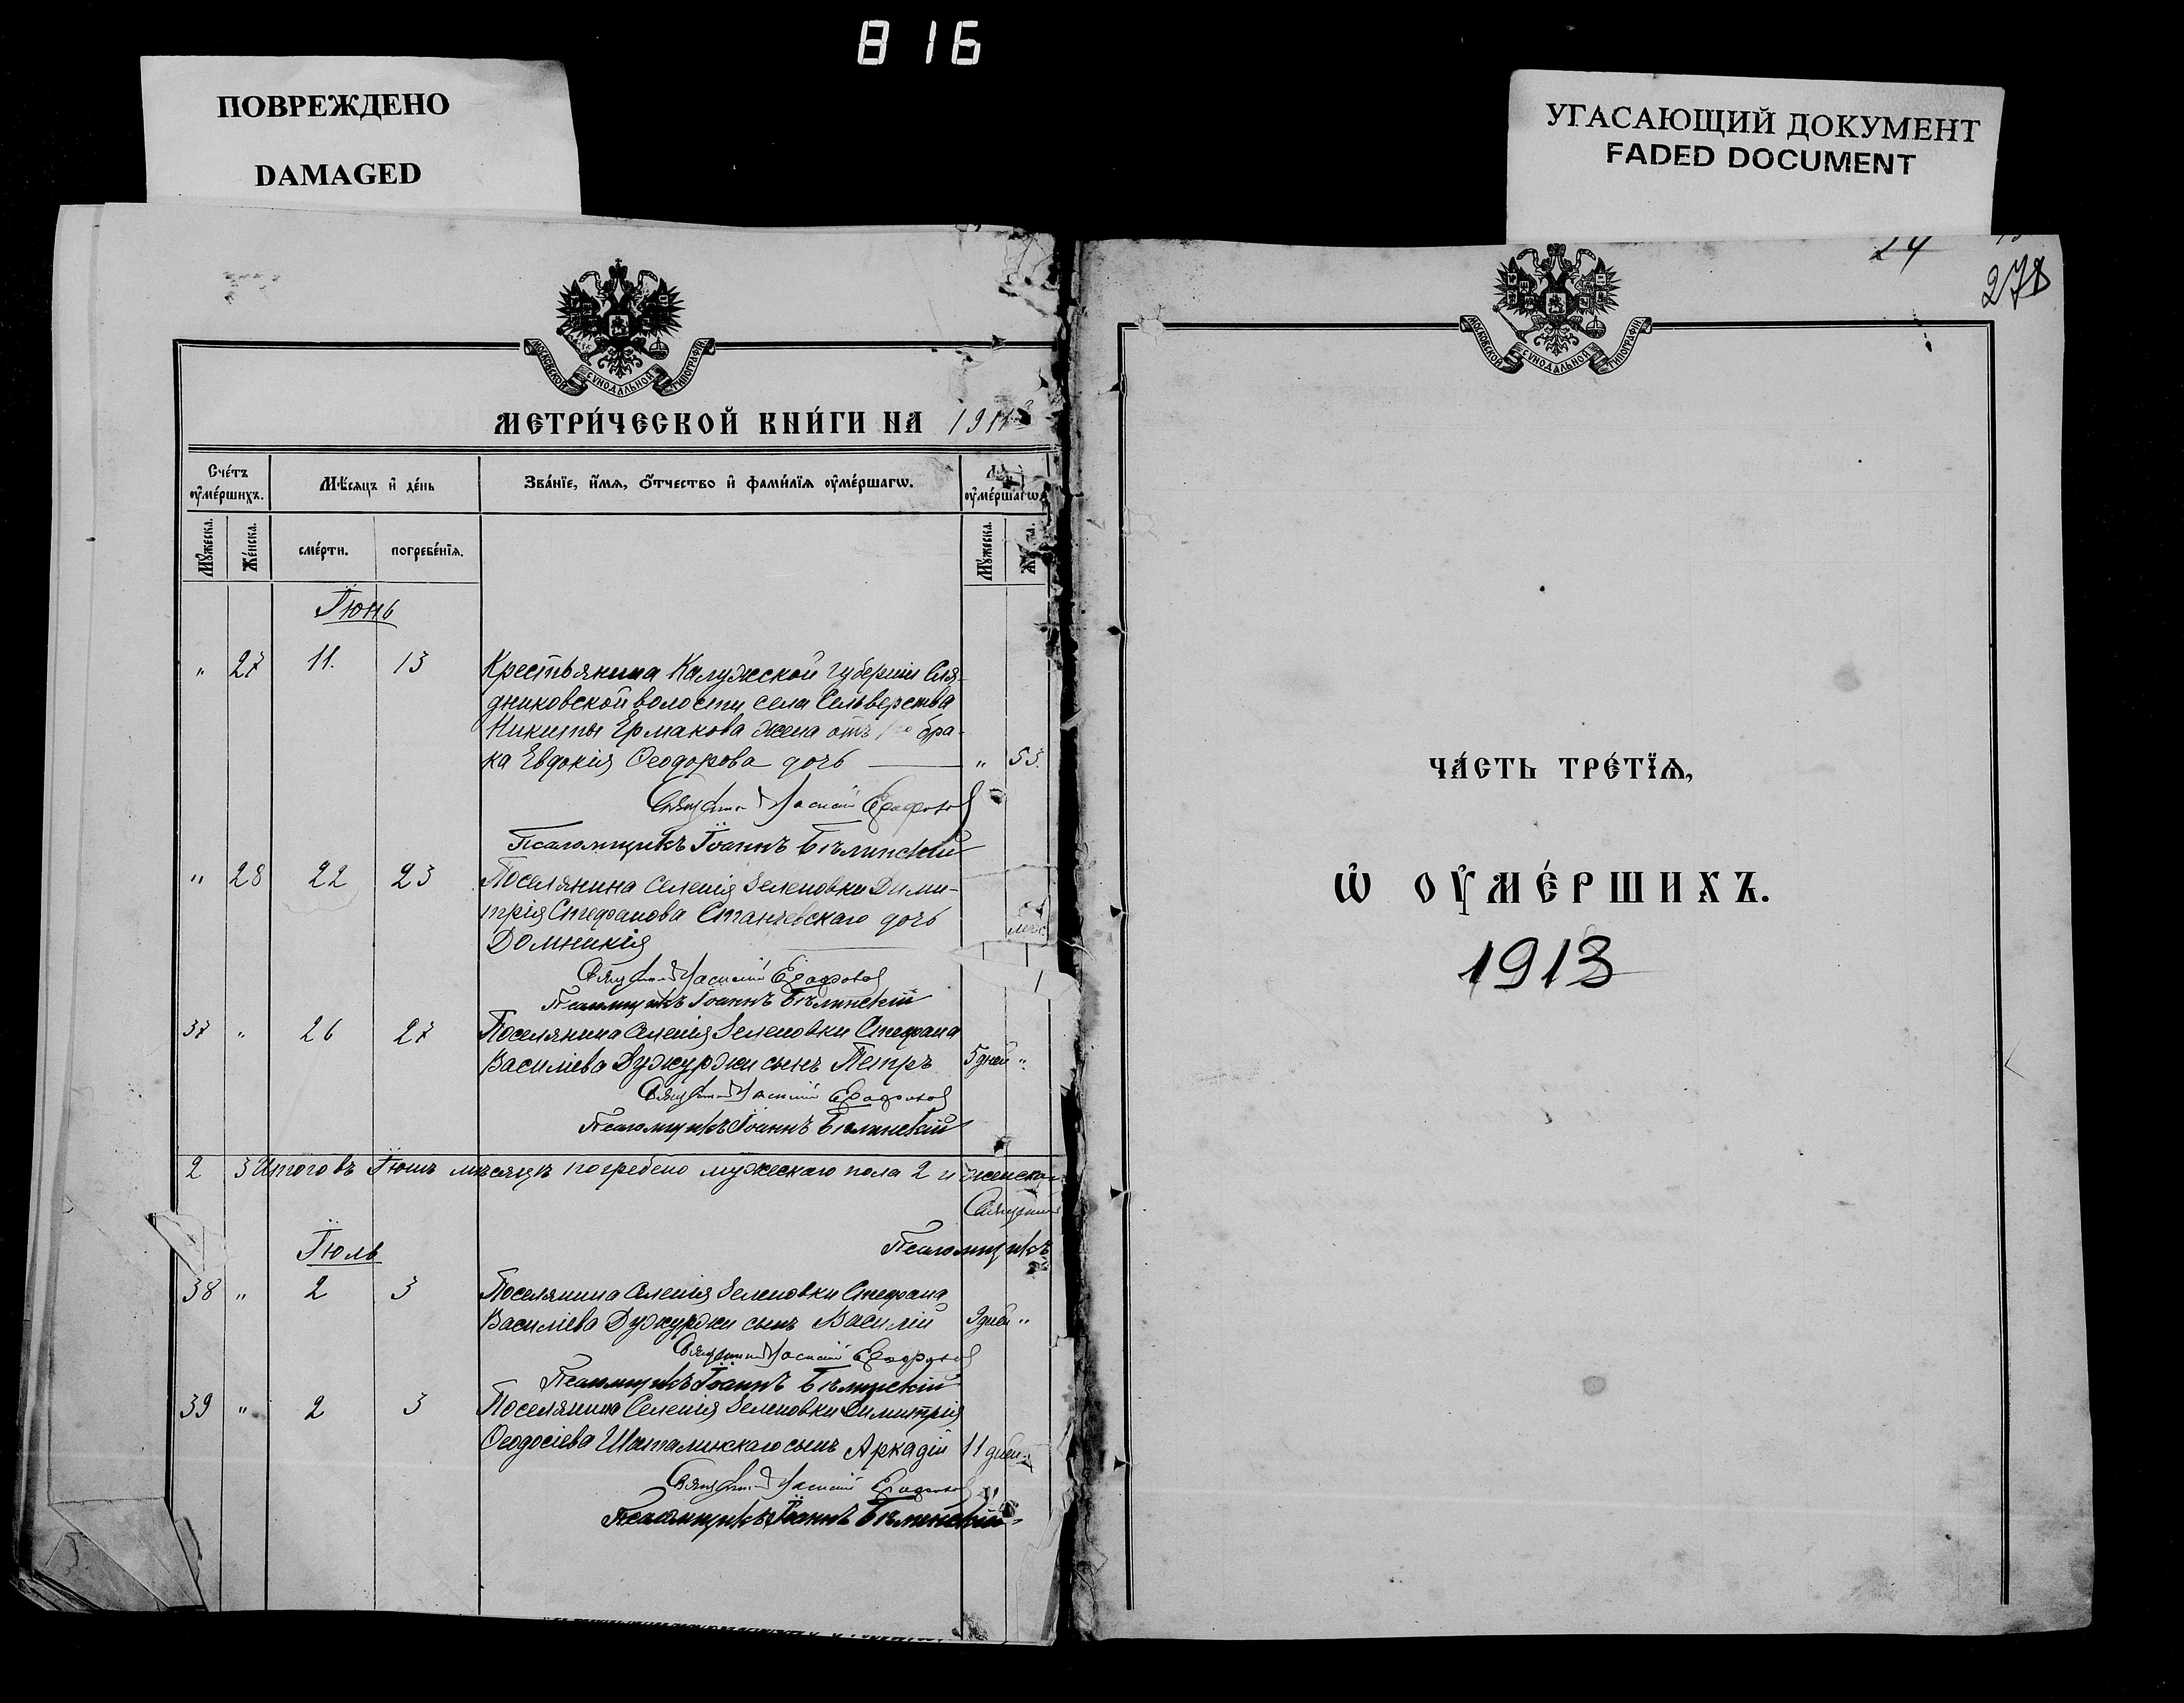 816
ПОВРЕЖДЕНО
DAMAGED
УГАСАЮЩИЙ ДОКУМЕНТ
FADED DOCUMENT
МОСКОВСКОЙ СѴНОДАЛЬНОЙ ТИПОГРАФІИ
МЕТРИ́ЧЕСКОЙ КНИ́ГИ НА 191
Сче́тъ ѹме́ршихъ.
Мѣ́сяцъ и де́нь
Зва́нїе, и́мѧ, о́тчество и фами́лїѧ ѹме́ршагѡ.
ѹме́ршагѡ
Мꙋ́жеска.
Же́нска.
сме́рти.
погребе́нїѧ.
Мꙋ́жеска.
Іюнь
" 27 11. 13 Крестьянина Калужской губерніи Сля-
дниковской волости села Сельверства
Никиты Ермакова жена отъ бра-
ка Евдокія Ѳеодорова дочь " 53.
Священникъ
Псаломщикъ Іоаннъ Бѣлинскій
" 28 22 23 Поселянина селенія Зеленовки Дими-
трія Стефанова Станчевскаго дочь
Домникія
Священникъ
Псаломщикъ Іоаннъ Бѣлинскій
37 " 26 27 Поселянина селенія Зеленовки Стефана
Василіева Дужурджи сынъ Петръ 5 дней "
Священникъ
Псаломщикъ Іоаннъ Бѣлинскій
2 3 Итого въ Іюнѣ мѣсяцѣ погребено мужескаго пола 2 и женска
Священникъ
Псаломщикъ
Іюль
38 " 2 3 Поселянина селенія Зеленовки Стефана
Василіева Дужурджи сынъ Василій 9 дней "
Священникъ
Псаломщикъ Іоаннъ Бѣлинскій
39 " 2 3 Поселянина Селенія Зеленовки Димитрія
Ѳеодосіева Шаталинскаго сынъ Аркадій 11 дней
Священникъ
Псаломщикъ Іоаннъ Бѣлинскій
24
278
МОСКОВСКОЙ СѴНОДАЛЬНОЙ ТИПОГРАФІИ
ЧА́СТЬ ТРЕ́ТЇѦ,
Ѡ ОУМЕ́РШИХЪ.
1913